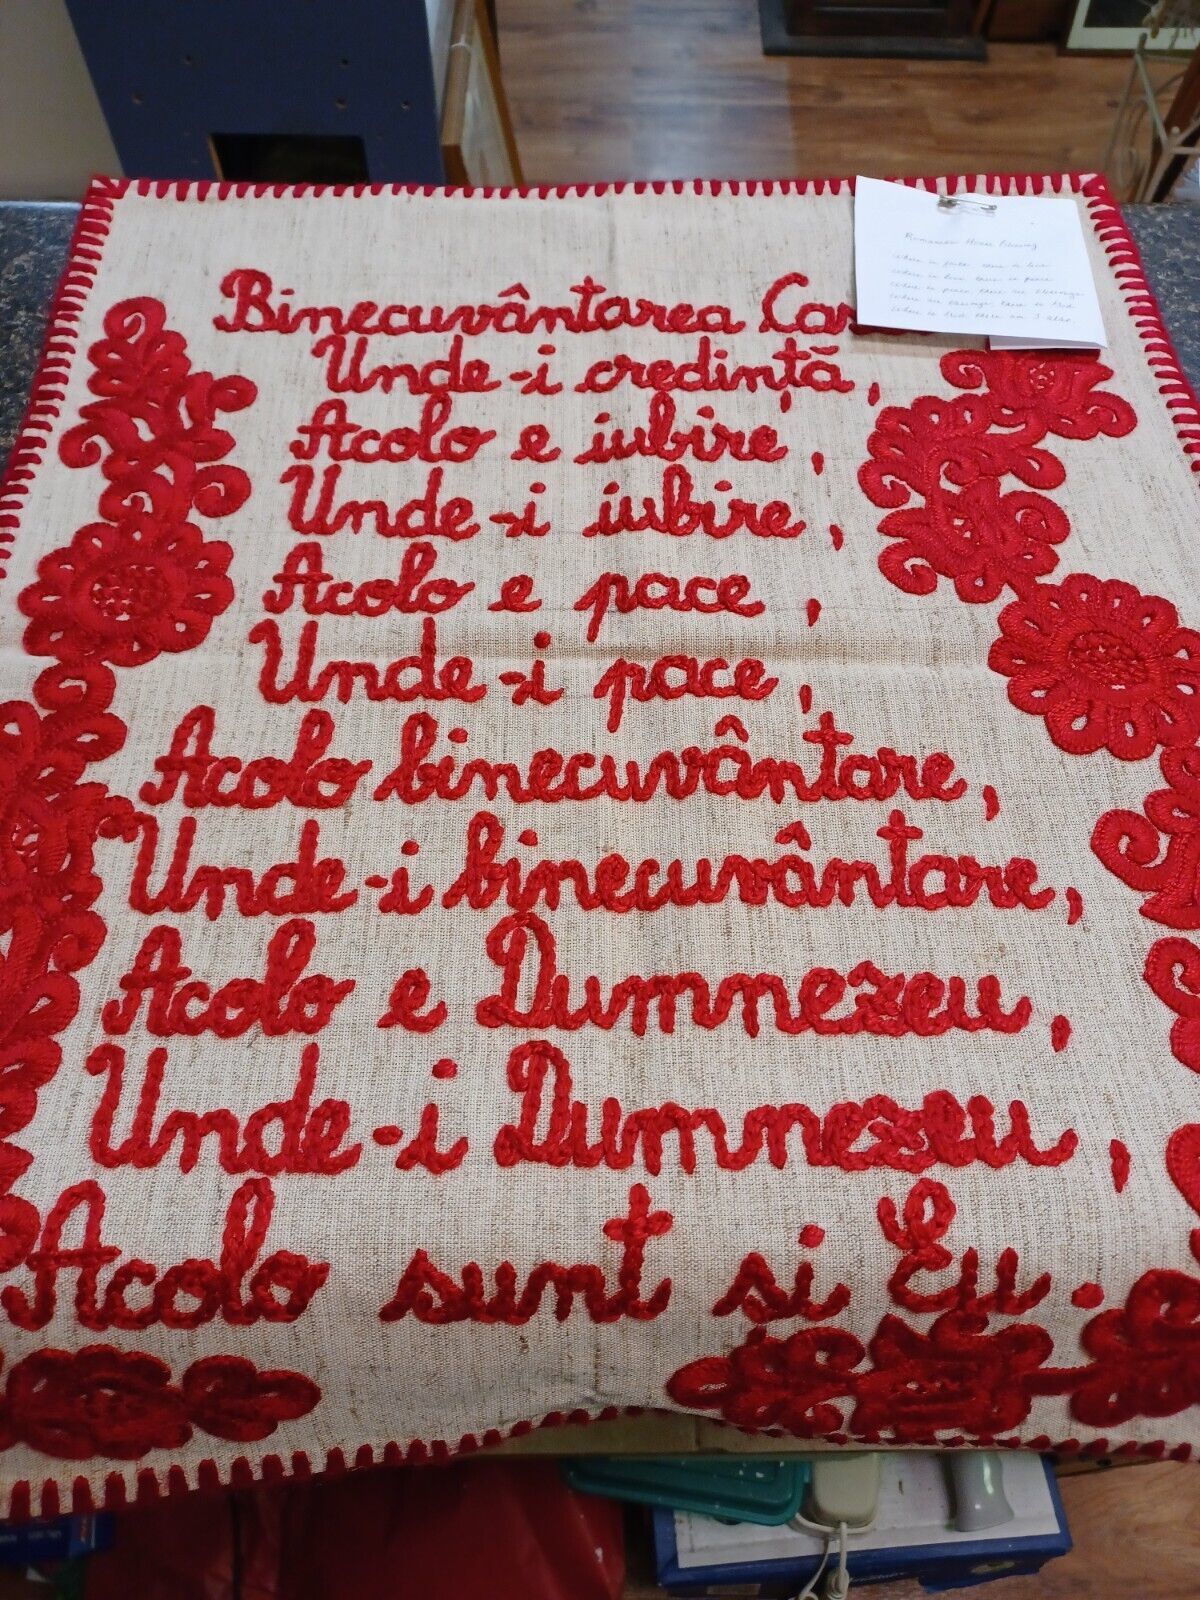 Binecuvântarea Cas
Unde-i credință,
Acolo e iubire,
Unde-i iubire,
Acolo e pace,
Unde-i pace,
Acolo binecuvântare,
Unde-i binecuvântare,
Acolo e Dumnezeu,
Unde-i Dumnezeu,
Acolo sunt si Eu.
Romanian House Blessing
Where is faith there is love
Where is love there is peace
Where is peace there is blessing
Where is God there am I also.